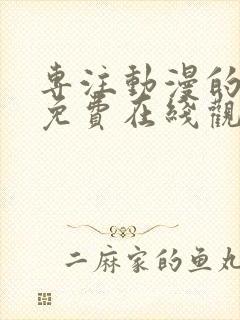 專注動漫的
免費在綫觀
二麻家的鱼丸